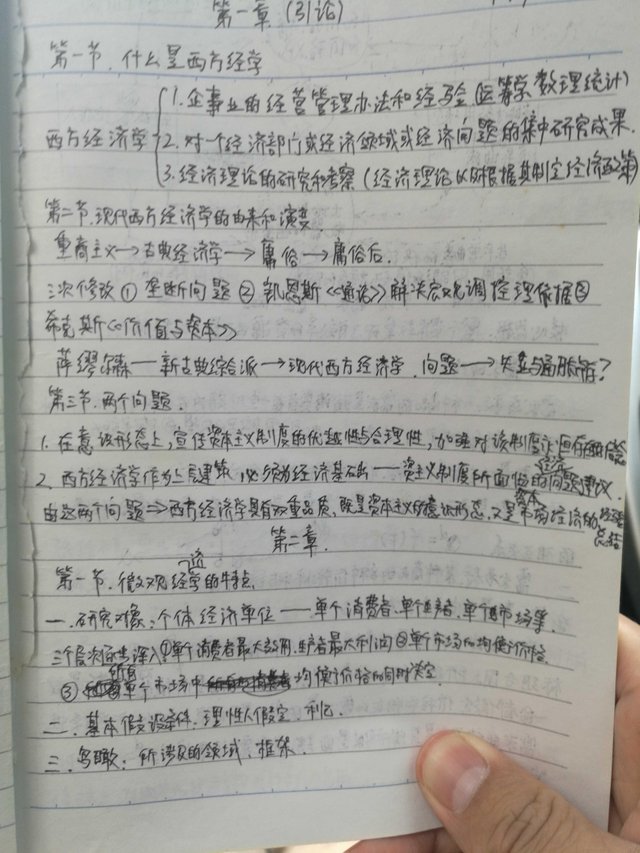 第一章 (引论)
第一节. 什么是西方经学
1. 企事业的经营管理办法和经验 (运筹学 数理统计)
西方经济学 2. 对一个经济部门或经济领域或经济问题的集中研究成果.
3. 经济理论的研究和考察 (经济理论以及根据其制定经济政策)
第二节. 现代西方经济学的由来和演变.
重商主义→古典经济学→庸俗→庸俗后.
三次修改 ① 垄断问题 ② 凯恩斯《通论》解决宏观调控理依据 ③
希克斯《价值与资本》
萨缪尔森—新古典综合派→现代西方经济学. 问题→失业与通胀并存?
第三节. 两个问题.
1. 在意识形态上, 宣传资本主义制度的优越性与合理性, 加强对该制度
2. 西方经济学作为上层建筑, 必须为经济基础——资主义制度所面临的经济问题建议.
由这两个问题⇒西方经济学具有双重品质. 既是资本主义的意识形态, 又是资本市场经济的经验总结
第二章.
第一节. 微观经济学的特点
一. 研究对象: 个体经济单位——单个消费者、单个生产者、单个市场等.
三个层次逐步深入 ① 单个消费者最大效用, 生产者最大利润 ② 单个市场的均衡价格
③ 所有单个市场中 均衡价格的同时决定.
二. 基本假设条件. 理性人假定 利己.
三. 鸟瞰: 所涉及的领域、框架.